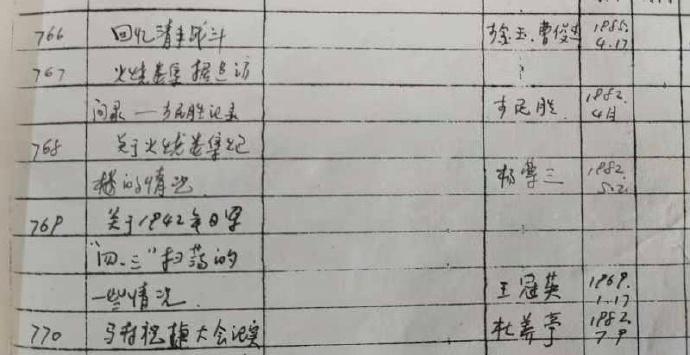 766 回忆清丰战斗 徐玉.曹俊 1985.
4.17
767 火烧娄集据 访
问录—于民胜记录 于民胜 1982.
4月
768 关于火烧娄集
楼的情况 杨 三 1982.
5.2.
769 关于1942年日军
"四.三"扫荡的
一些情况. 王冠英 1969.
1.17
770 马村祝捷大会记实 杜善亭 1982.
7.9